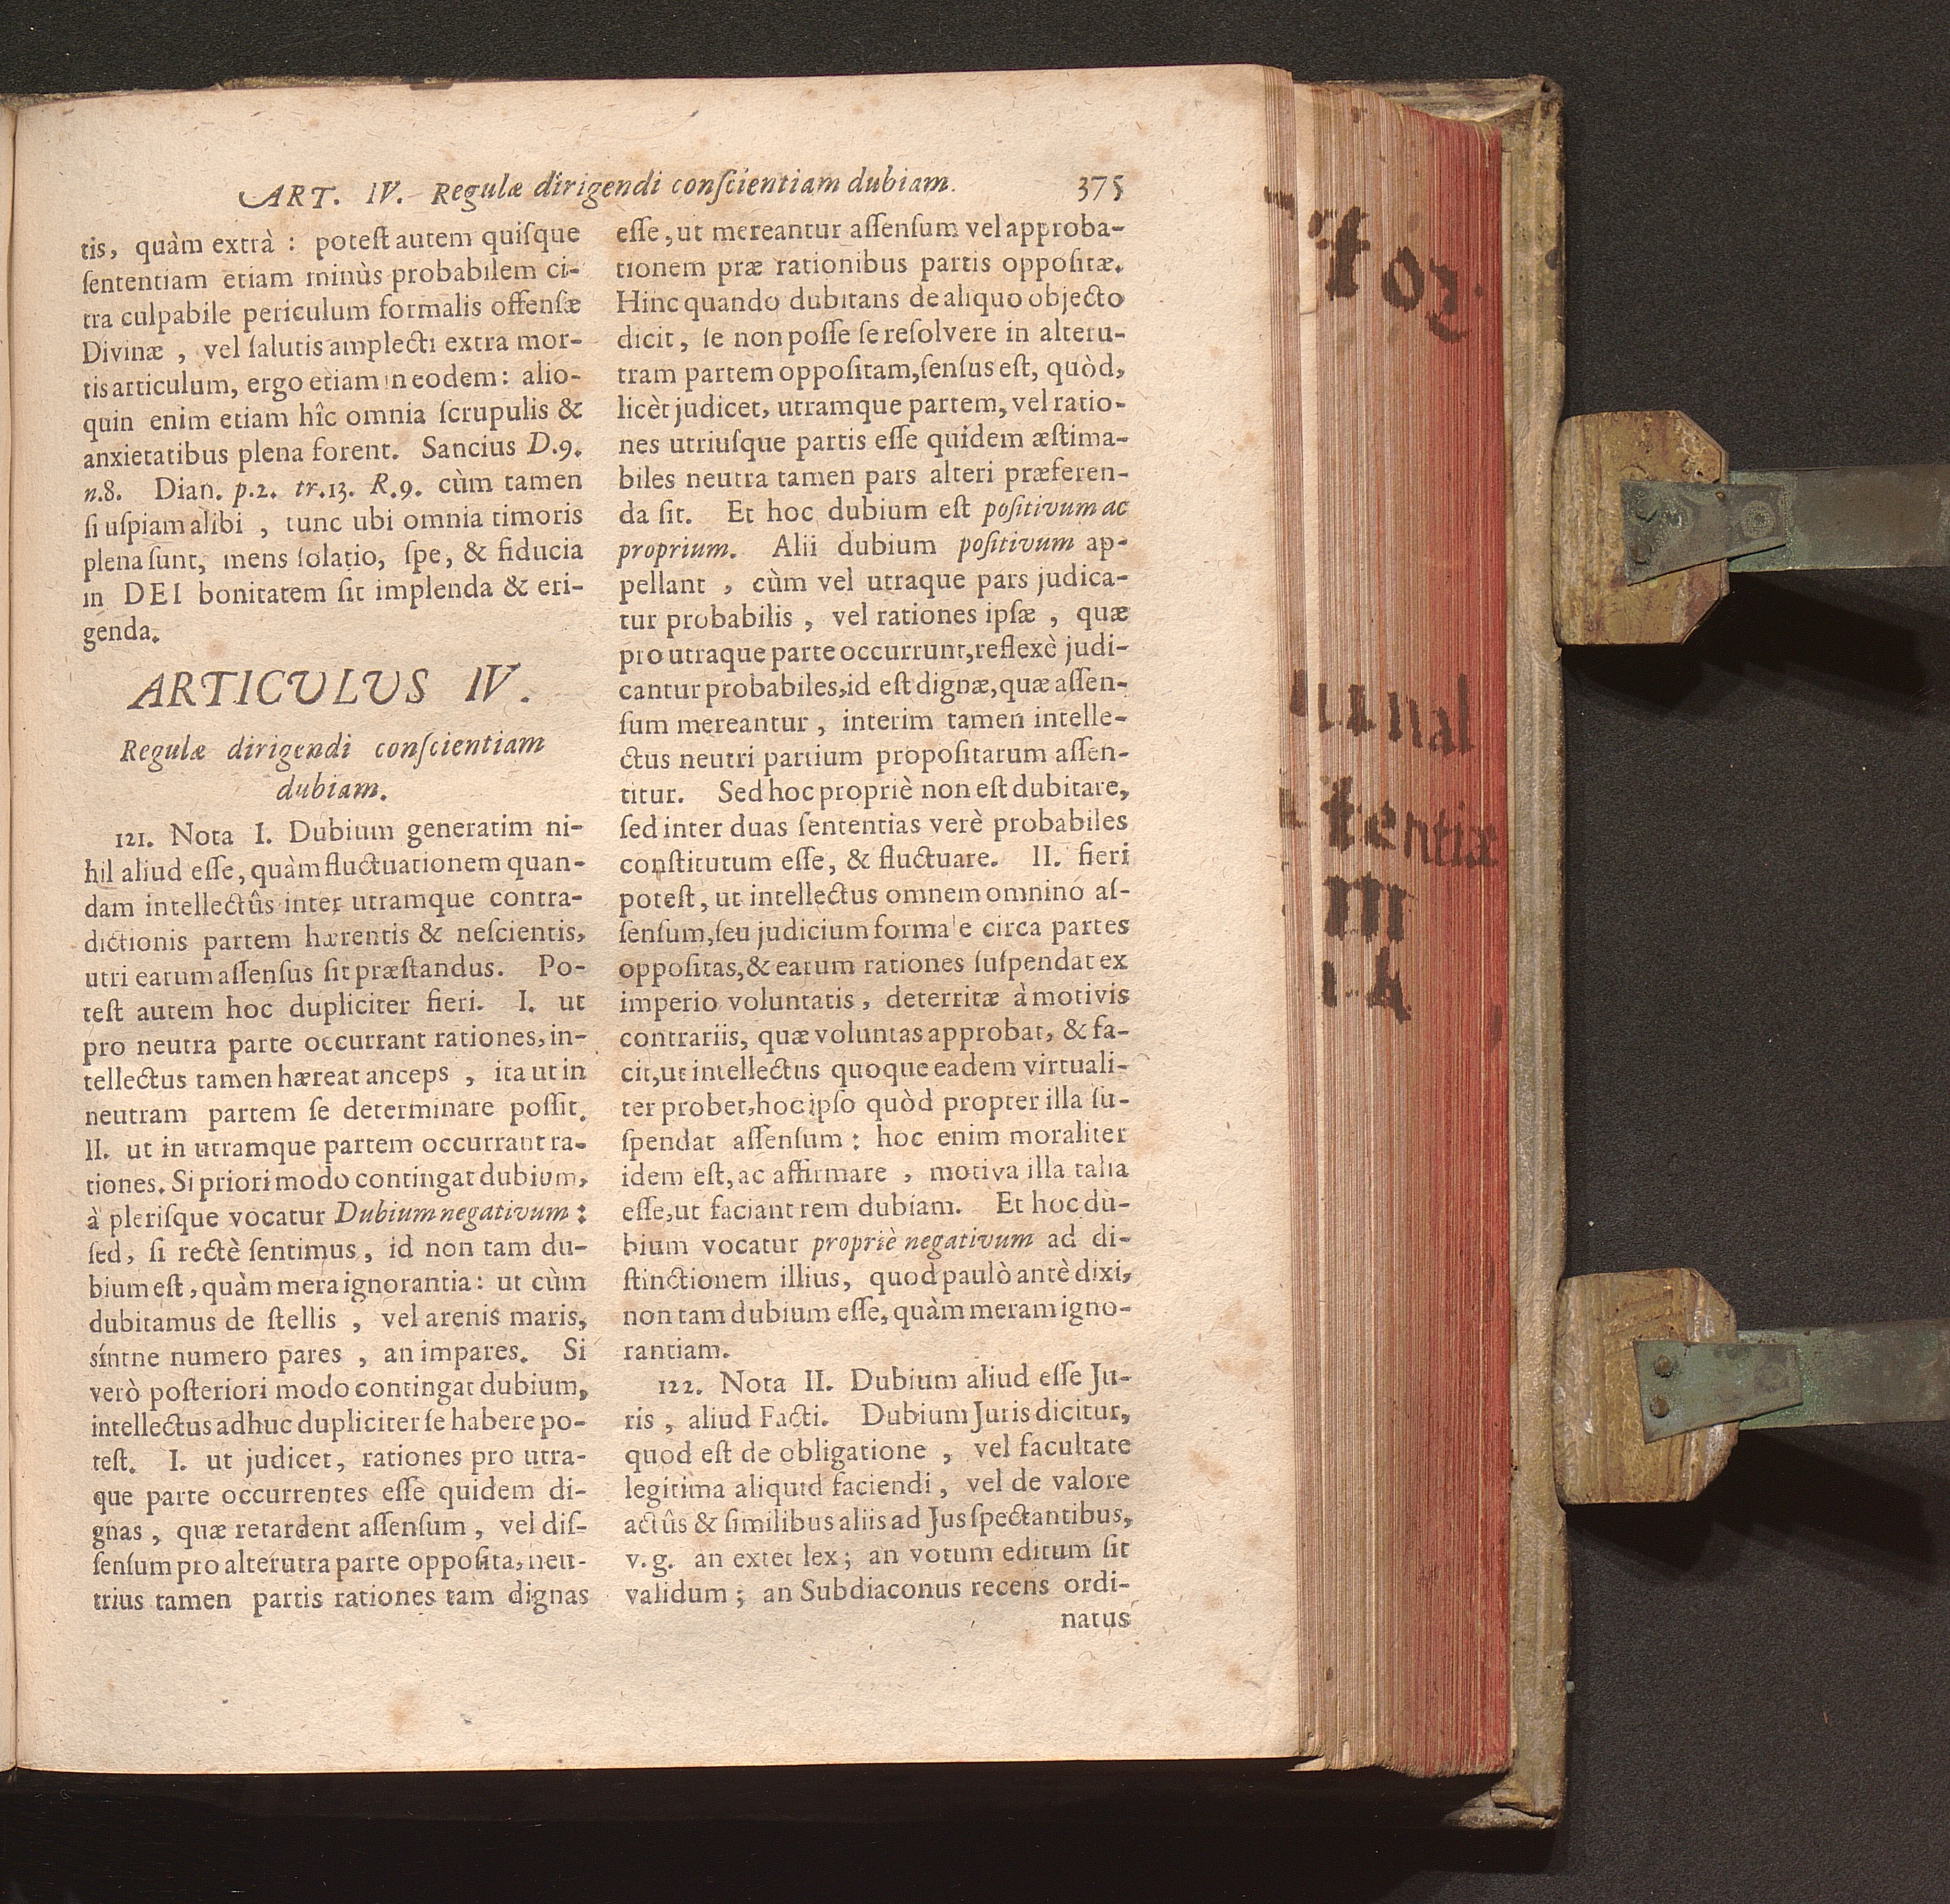 ART. IV. Regulæ dirigendi conſcientiam dubiam. 375
tis, quàm extrà : poteſt autem quiſque
ſententiam etiam minùs probabilem ci-
tra culpabile periculum formalis offenſæ
Divinæ , vel ſalutis amplecti extra mor-
tis articulum, ergo etiam in eodem : alio-
quin enim etiam hîc omnia ſcrupulis &
anxietatibus plena forent. Sancius D.9.
n.8. Dian. p.2. tr.13. R.9. cùm tamen
ſi uſpiam alibi , tunc ubi omnia timoris
plena ſunt, mens ſolatio, ſpe, & fiducia
in DEI bonitatem ſit implenda & eri-
genda.
ARTICULUS IV.
Regulæ dirigendi conſcientiam
dubiam.
121. Nota I. Dubium generatim ni-
hil aliud eſſe, quàm fluctuationem quan-
dam intellectûs inter utramque contra-
dictionis partem hærentis & neſcientis,
utri earum aſſenſus ſit præſtandus. Po-
teſt autem hoc dupliciter fieri. I. ut
pro neutra parte occurrant rationes, in-
tellectus tamen hæreat anceps , ita ut in
neutram partem ſe determinare poſſit.
II. ut in utramque partem occurrant ra-
tiones. Si priori modo contingat dubium,
à pleriſque vocatur Dubium negativum :
ſed, ſi rectè ſentimus, id non tam du-
bium eſt, quàm mera ignorantia : ut cùm
dubitamus de ſtellis , vel arenis maris,
síntne numero pares , an impares. Si
verò poſteriori modo contingat dubium,
intellectus adhuc dupliciter ſe habere po-
teſt. I. ut judicet, rationes pro utra-
que parte occurrentes eſſe quidem di-
gnas, quæ retardent aſſenſum, vel diſ-
ſenſum pro alterutra parte oppoſita, neu-
trius tamen partis rationes tam dignas
eſſe, ut mereantur aſſenſum vel approba-
tionem præ rationibus partis oppoſitæ.
Hinc quando dubitans de aliquo objecto
dicit, ſe non poſſe ſe reſolvere in alteru-
tram partem oppoſitam, ſenſus eſt, quòd,
licèt judicet, utramque partem, vel ratio-
nes utriuſque partis eſſe quidem æſtima-
biles neutra tamen pars alteri præferen-
da ſit. Et hoc dubium eſt poſitivum ac
proprium. Alii dubium poſitivum ap-
pellant , cùm vel utraque pars judica-
tur probabilis , vel rationes ipſæ , quæ
pro utraque parte occurrunt, reflexè judi-
cantur probabiles, id eſt dignæ, quæ aſſen-
ſum mereantur , interim tamen intelle-
ctus neutri partium propoſitarum aſſen-
titur. Sed hoc propriè non eſt dubitare,
ſed inter duas ſententias verè probabiles
conſtitutum eſſe, & fluctuare. II. fieri
poteſt, ut intellectus omnem omnino aſ-
ſenſum, ſeu judicium formale circa partes
oppoſitas, & earum rationes ſuſpendat ex
imperio voluntatis, deterritæ à motivis
contrariis, quæ voluntas approbat, & fa-
cit, ut intellectus quoque eadem virtuali-
ter probet, hoc ipſo quòd propter illa ſu-
ſpendat aſſenſum : hoc enim moraliter
idem eſt, ac affirmare , motiva illa talia
eſſe, ut faciant rem dubiam. Et hoc du-
bium vocatur propriè negativum ad di-
ſtinctionem illius, quod paulò antè dixi,
non tam dubium eſſe, quàm meram igno-
rantiam.
122. Nota II. Dubium aliud eſſe Ju-
ris , aliud Facti. Dubium Juris dicitur,
quod eſt de obligatione , vel facultate
legitima aliquid faciendi, vel de valore
actûs & ſimilibus aliis ad Jus ſpectantibus,
v. g. an extet lex ; an votum editum ſit
validum ; an Subdiaconus recens ordi-
natus